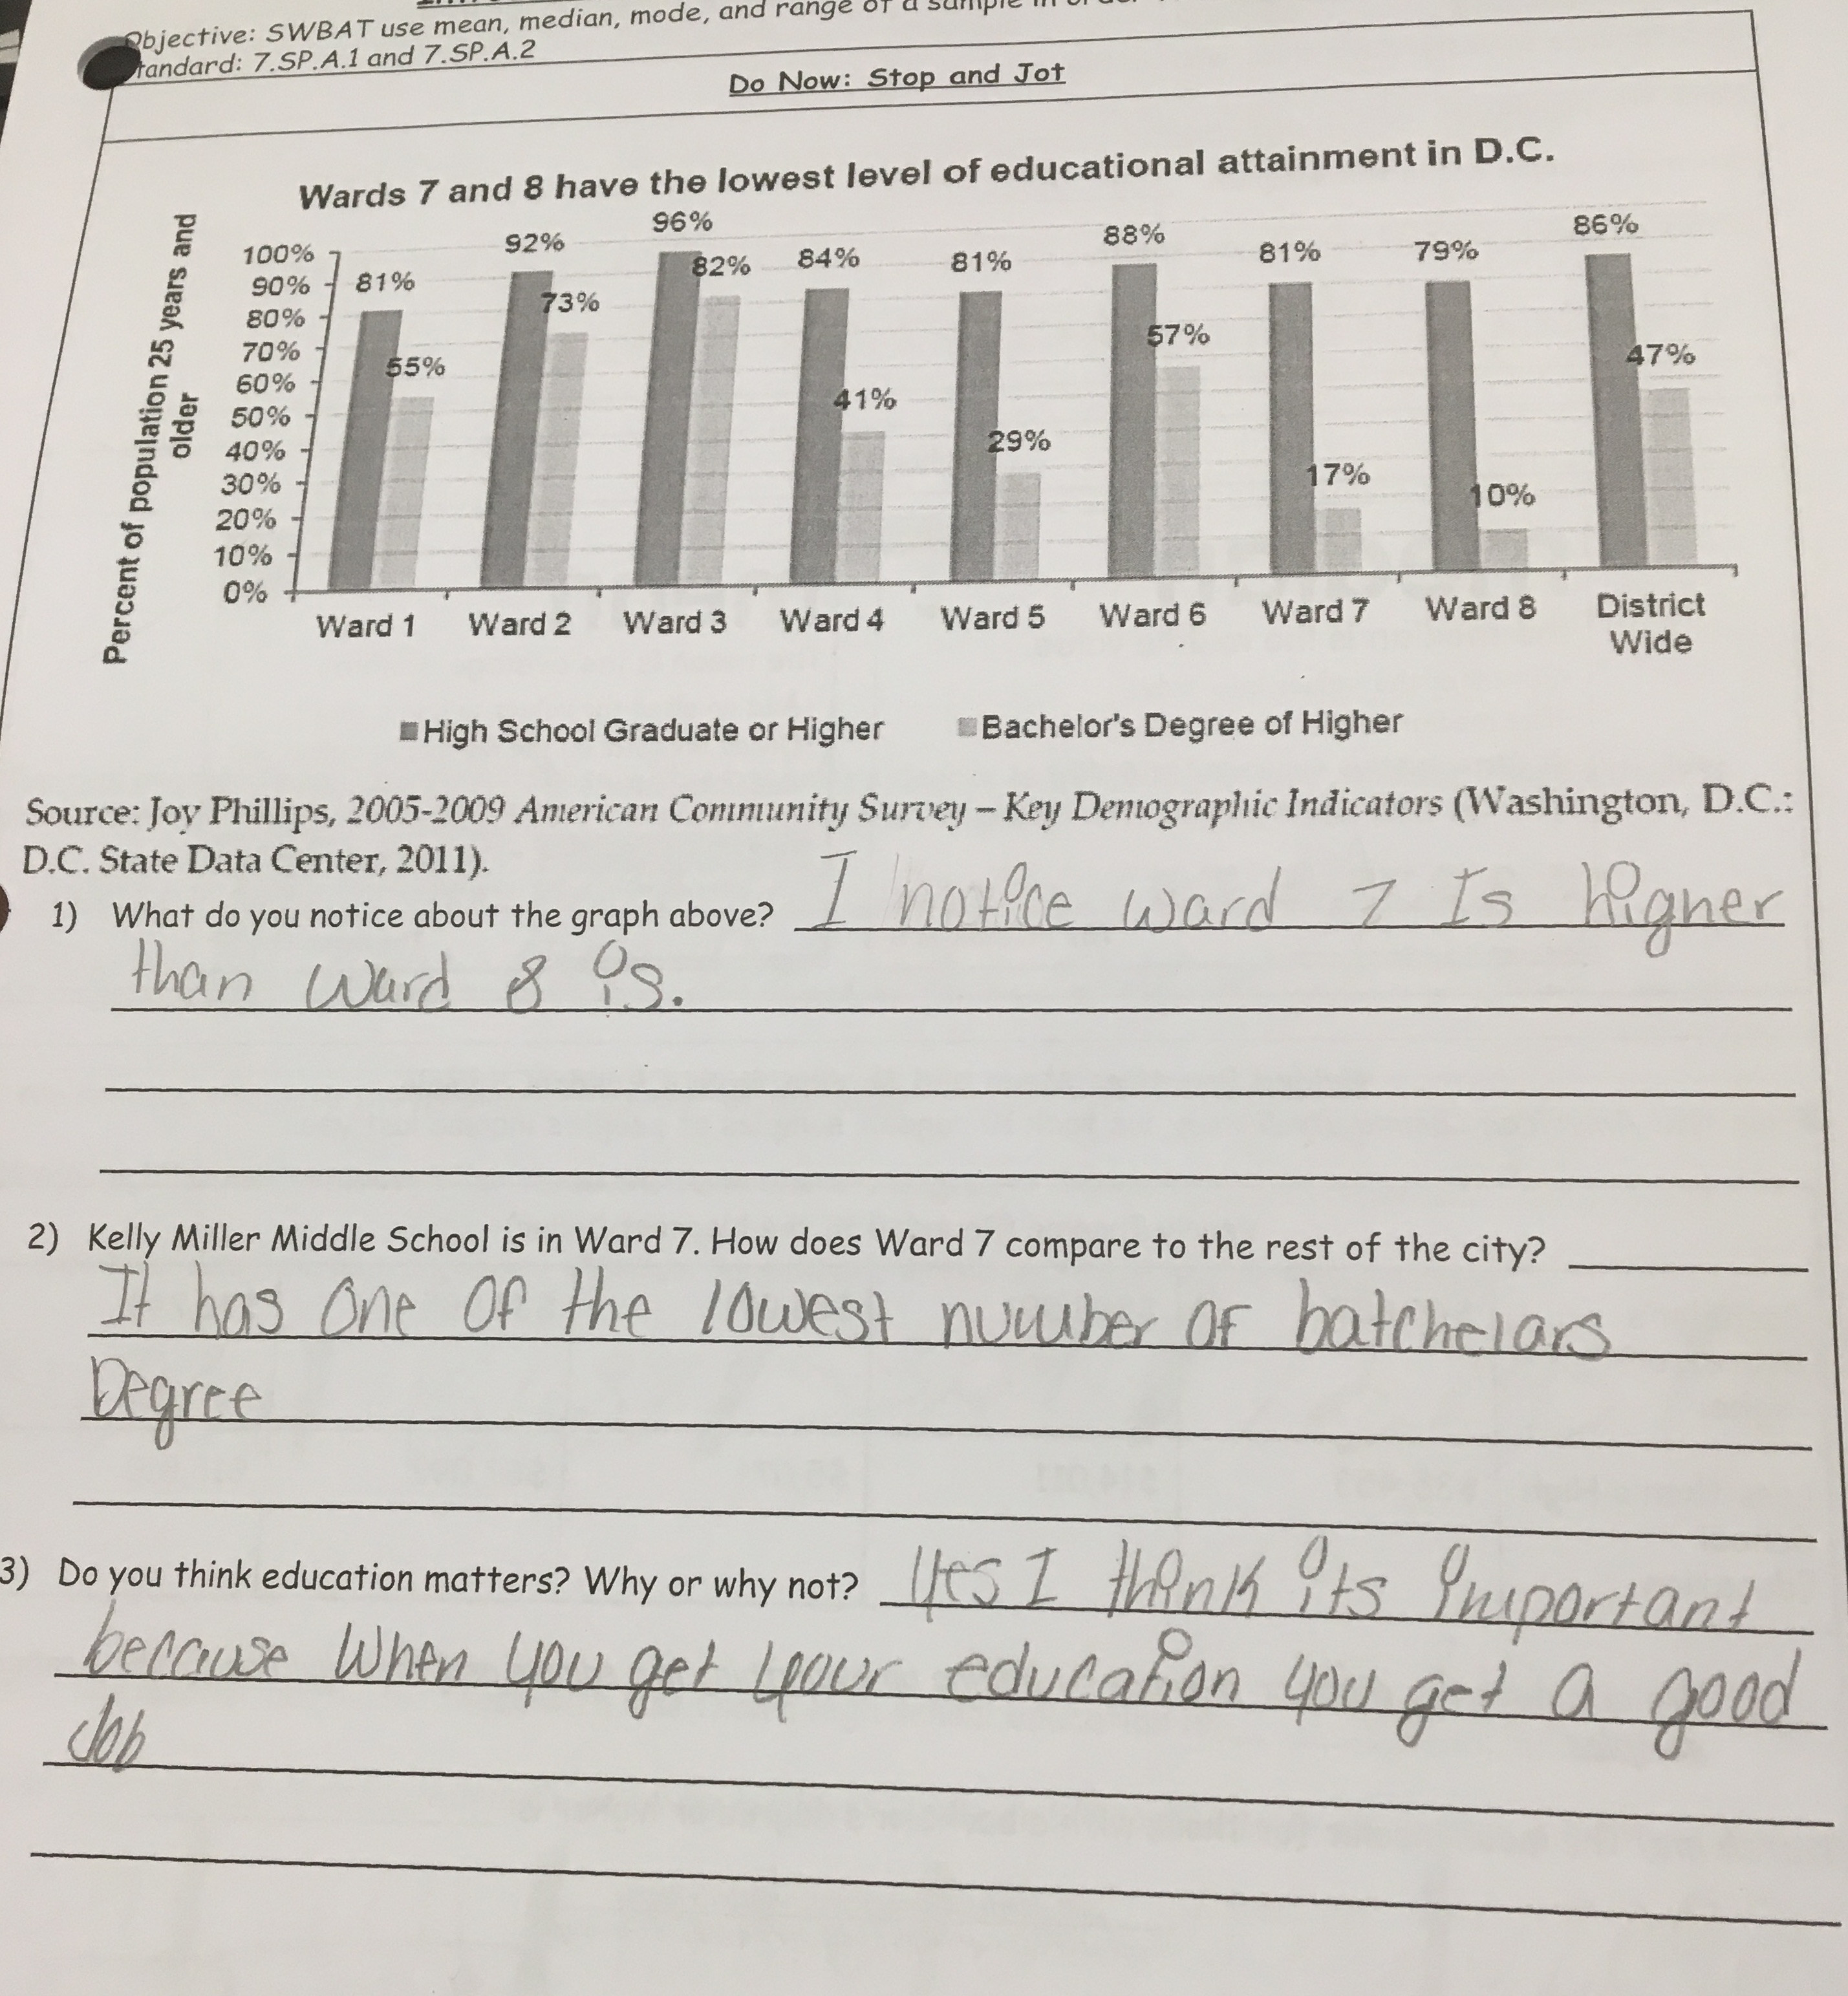 Objective: SWBAT use mean, median, mode, and range of a sample in
tandard: 7.SP.A.1 and 7.SP.A.2
Do Now: Stop and Jot
Wards 7 and 8 have the lowest level of educational attainment in D.C.
Percent of population 25 years and
older
100%
90%
80%
70%
60%
50%
40%
30%
20%
10%
0%
81% 55%
92% 73%
96% 82%
84% 41%
81% 29%
88% 57%
81% 17%
79% 10%
86% 47%
Ward 1 Ward 2 Ward 3 Ward 4 Ward 5 Ward 6 Ward 7 Ward 8 District
Wide
High School Graduate or Higher Bachelor's Degree of Higher
Source: Joy Phillips, 2005-2009 American Community Survey – Key Demographic Indicators (Washington, D.C.:
D.C. State Data Center, 2011).
1) What do you notice about the graph above? I notice ward 7 Is higher
than ward 8 is.
2) Kelly Miller Middle School is in Ward 7. How does Ward 7 compare to the rest of the city?
It has one of the lowest number of batchelars
Degree
3) Do you think education matters? Why or why not? Yes I think its important
because when you get your education you get a good
Job